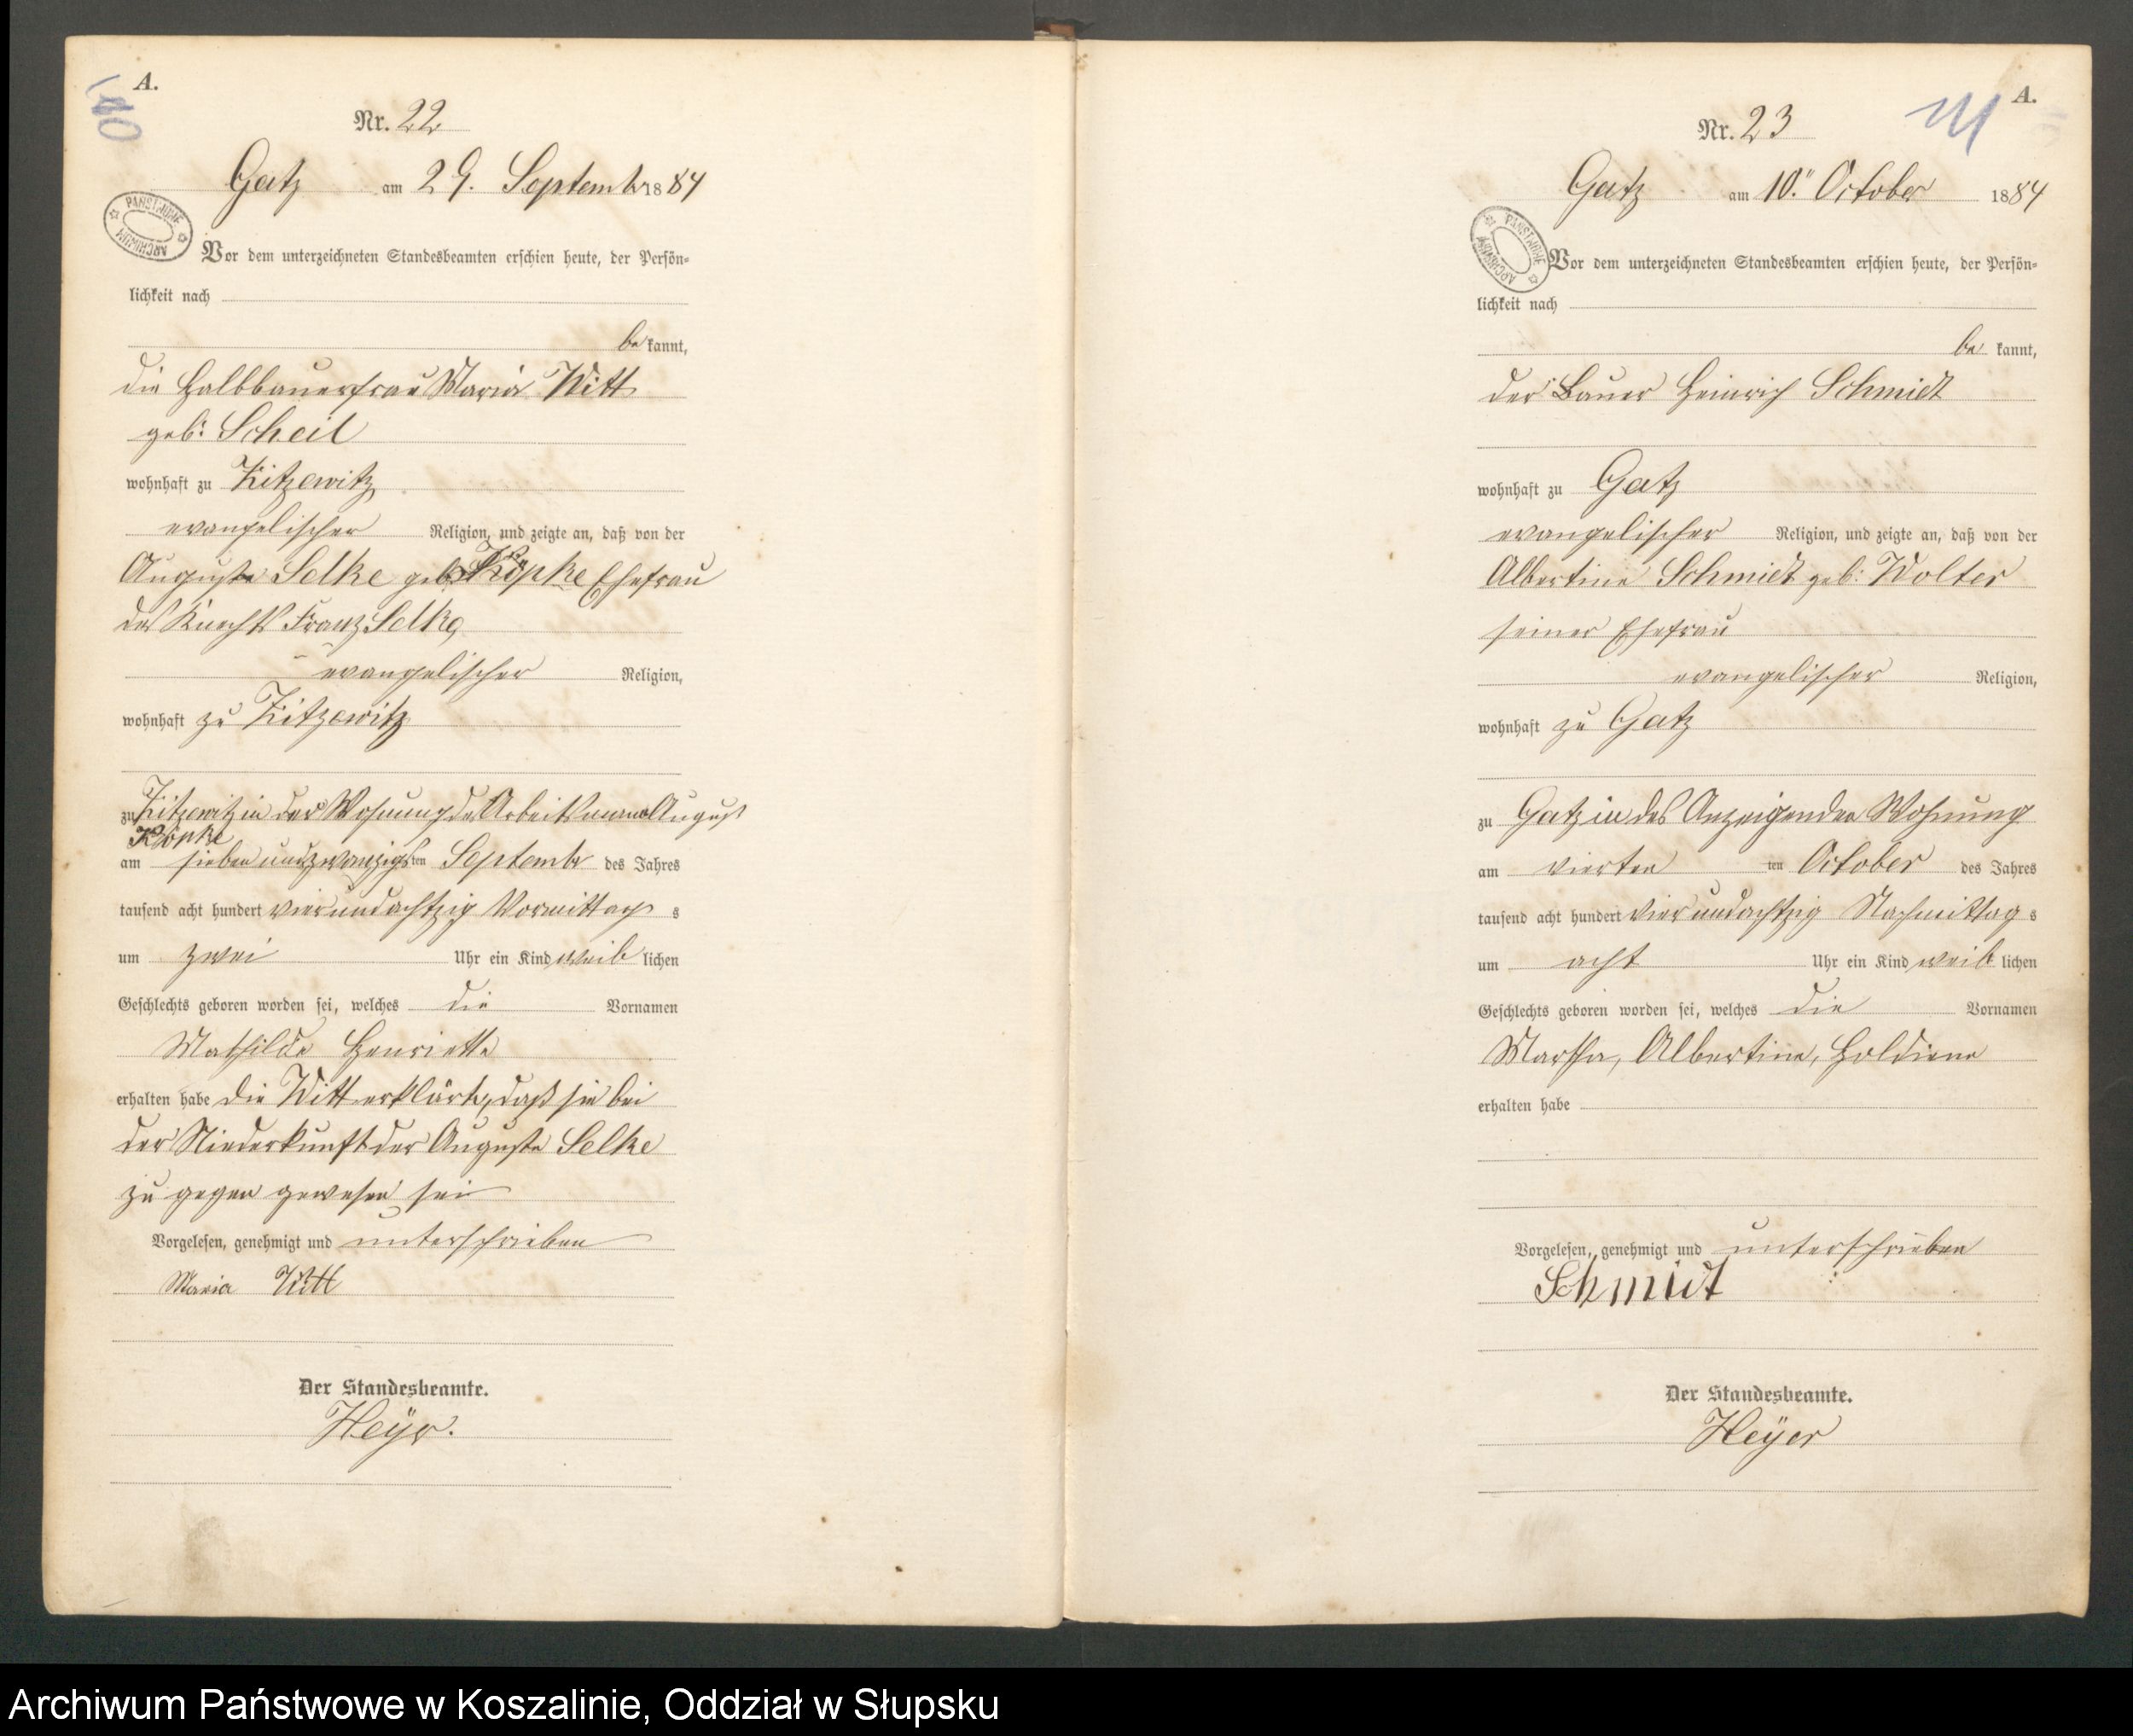 A.
140
Nr. 22
Gatz am 29. Septembr 1884
PAŃSTWOWE ARCHIWUM
Vor dem unterzeichneten Standesbeamten erschien heute, der Persön-
lichkeit nach
be kannt,
die Halbbauerfrau Maria Witt
geb: Scheil
wohnhaft zu Zitzewitz
evangelischer Religion, und zeigte an, daß von der
Auguste Selke geb: Köpke Ehefrau
des Knechts Franz Selke,
evangelischer Religion,
wohnhaft zu Zitzewitz
zu Zitzewitz in der Wohnung des Arbeitsmann August
Köpke
am sieben und zwanzigsten Septembr des Jahres
tausend acht hundert vier und achtzig Vormittag s
um zwei Uhr ein Kind weib lichen
Geschlechts geboren worden sei, welches die Vornamen
Mathilde Henriette
erhalten habe die Witt erklärte, daß sie bei
der Niederkunft der Auguste Selke
zu gegen gewesen sei
Vorgelesen, genehmigt und unterschrieben
Maria Witt
Der Standesbeamte.
Heÿer.
A.
141
Nr. 23
Gatz am 10." October 1884
PAŃSTWOWE ARCHIWUM
Vor dem unterzeichneten Standesbeamten erschien heute, der Persön-
lichkeit nach
be kannt,
der Bauer Heinrich Schmidt
wohnhaft zu Gatz
evangelischer Religion, und zeigte an, daß von der
Albertine Schmidt geb: Wolter
seiner Ehefrau
evangelischer Religion,
wohnhaft zu Gatz
zu Gatz in des Anzeigenden Wohnung
am vierten ten October des Jahres
tausend acht hundert vier und achtzig Nachmittag s
um acht Uhr ein Kind weib lichen
Geschlechts geboren worden sei, welches die Vornamen
Martha, Albertine, Holdiene
erhalten habe
Vorgelesen, genehmigt und unterschrieben
Schmidt
Der Standesbeamte.
Heÿer
Archiwum Państwowe w Koszalinie, Oddział w Słupsku